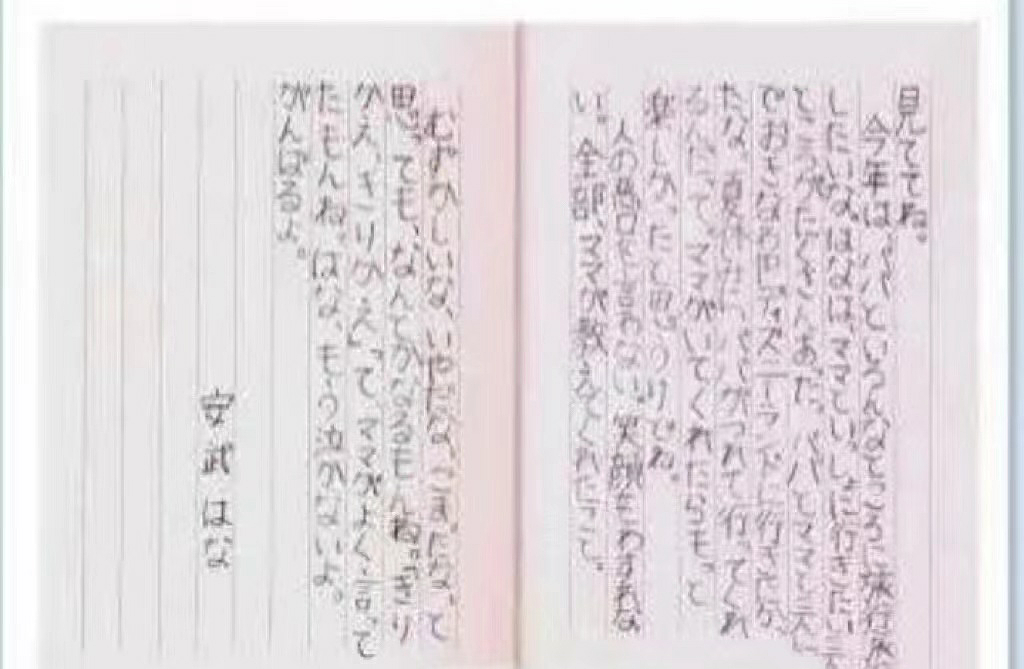 見ててね。
今年は、パパといろんなところに旅行が
したいな。はなは、ママといっしょに行きたい
ところがたくさんあった。パパとママと三人
でおきなわやディズニーランドに行きたかっ
たな。夏休みに、パパがつれて行ってくれ
るんだって。ママがいてくれたらもっと
楽しかったと思うけどね。
人の悪口を言わない。笑顔をわすれな
い。全部、ママが教えてくれたこと。
むずかしいな、いやだな、こまったなって
思っても、なんとかなるもん
かえ、きりかえ」って、ママがよく言って
たもんね。はな、もう泣かないよ。
がんばるよ。
安武はな